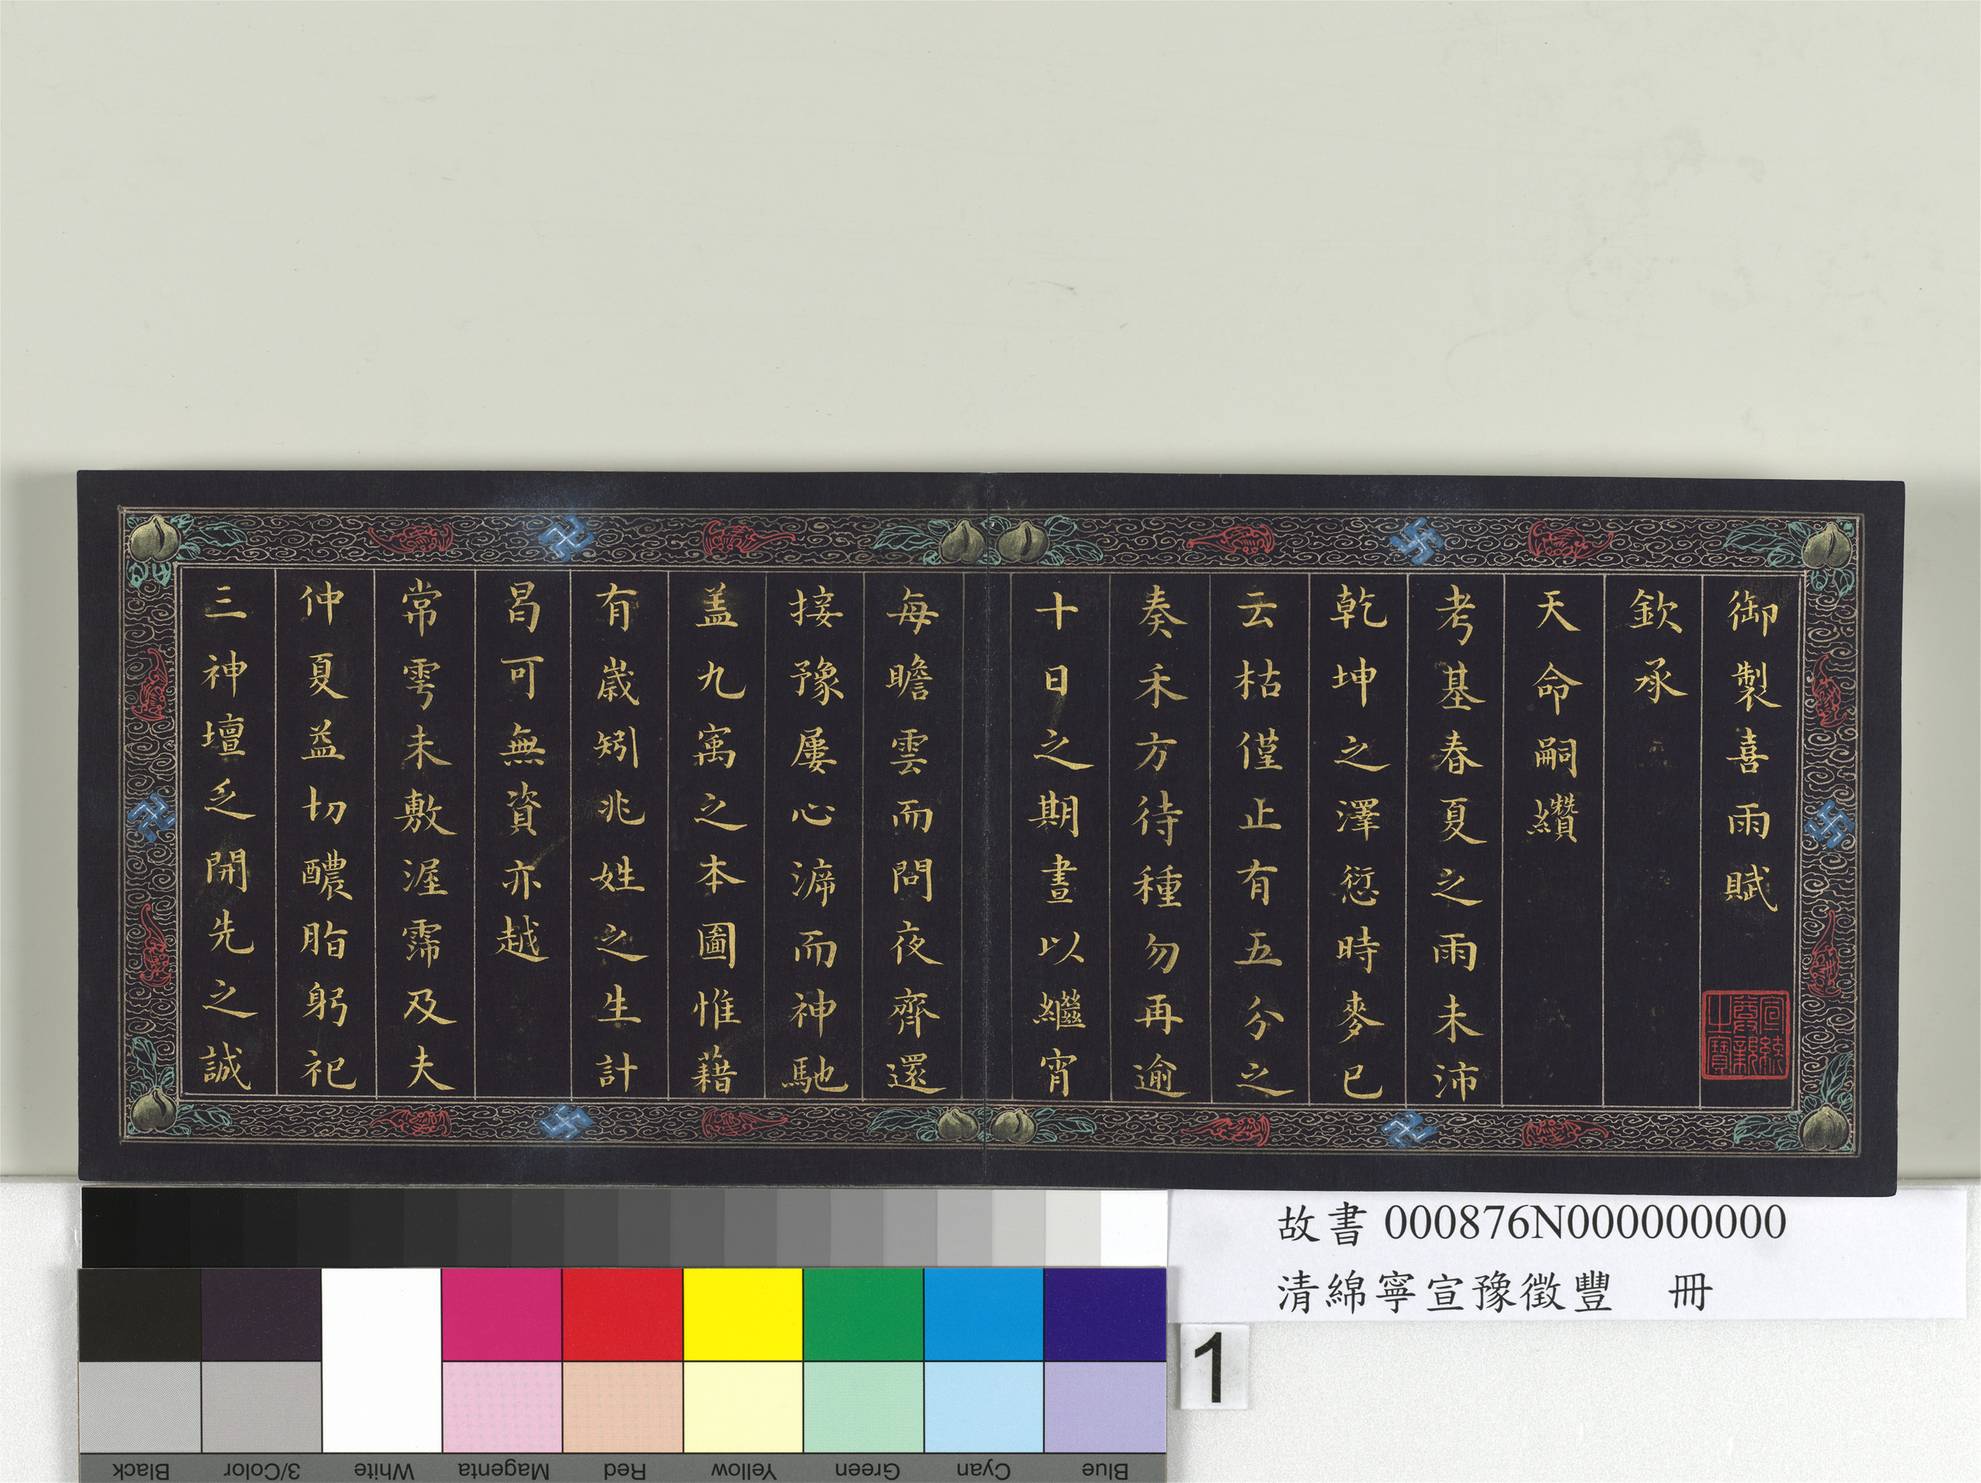 御製喜雨賦
欽承
天命嗣纘
考基春夏之雨未沛
乾坤之澤愆時麥已
云枯僅止有五分之
奏禾方待種勿再逾
十日之期晝以繼宵
每瞻雲而問夜齊還
接豫屢心渧而神馳
蓋九寓之本圖惟藉
有歲矧兆姓之生計
曷可無資亦越
常雩未敷渥霈及夫
仲夏益切醲脂躬祀
三神壇乏開先之誠
故書 000876N000000000
清綿寧宣豫徵豐 冊
1
Black
3/Color
White
Magenta
Red
Yellow
Green
Cyan
Blue